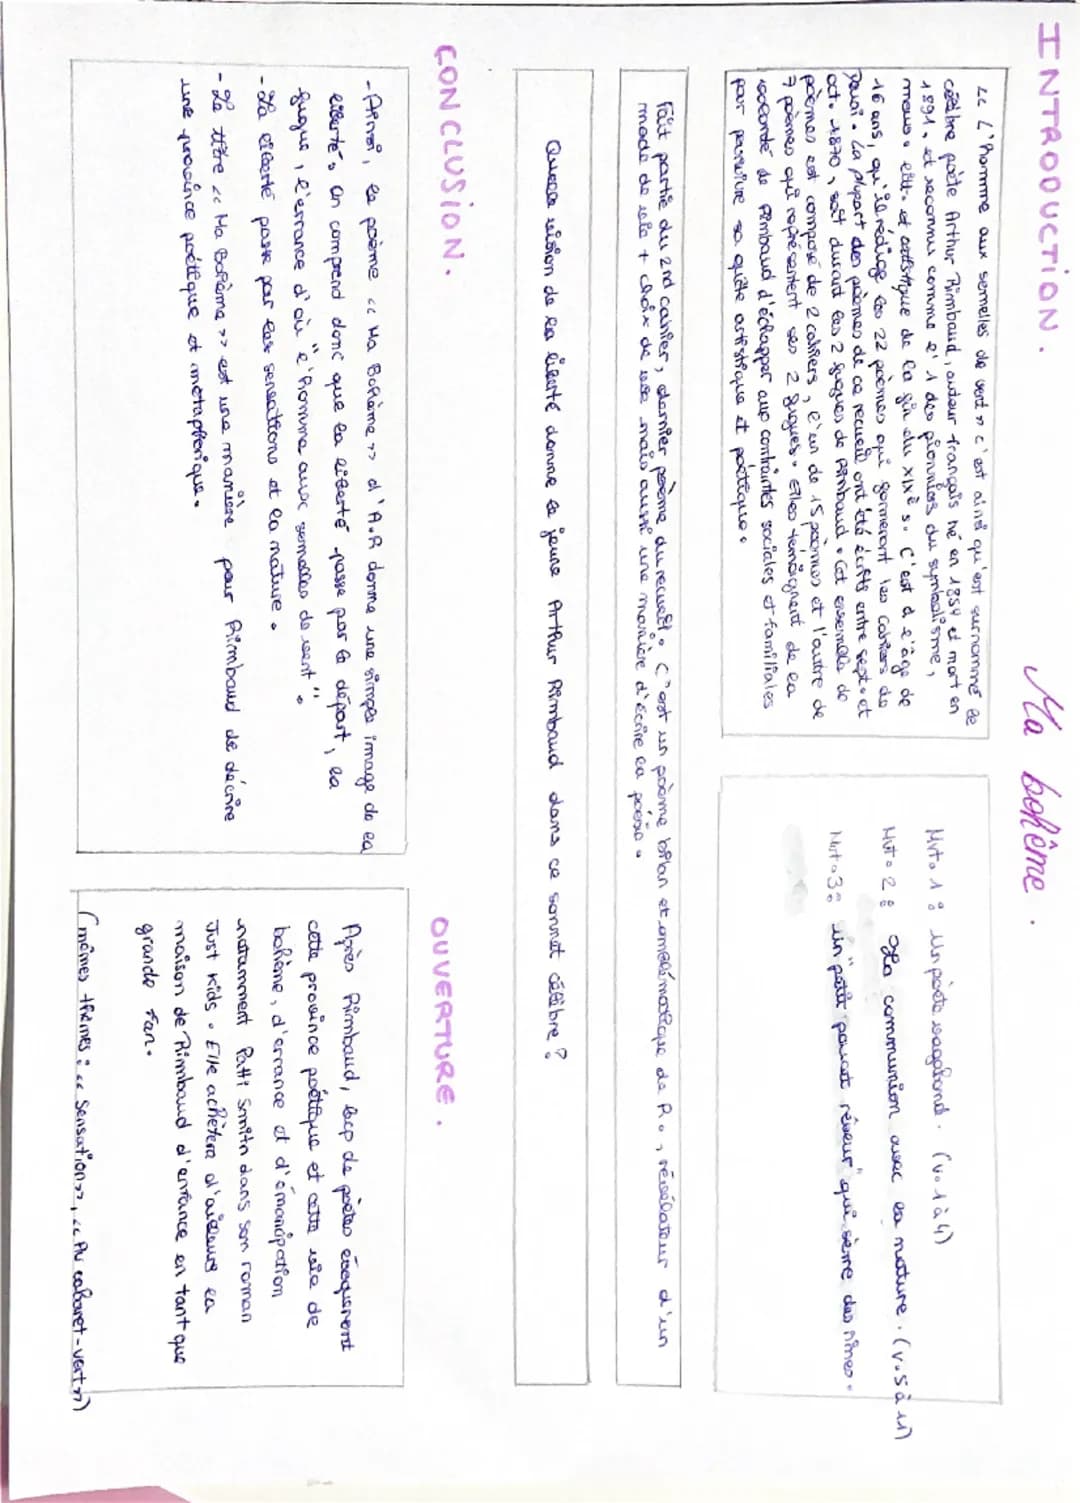 Ma bohême.
INTRODUCTION.
<< L'homme aux semelles de vent >> c'est ainsi qu'est surnommé le
célèbre poète Arthur Rimbaud, auteur français né en 1854 et mort en
1891, et reconnu comme l'1 des pionniers du symbolisme,
mouv. litt. et artistique de la fin du XIXè s. C'est à l'âge de
16 ans, qu'il rédige les 22 poèmes qui formeront les Cahiers de
Douai. La plupart des poèmes de ce recueil ont été écrits entre sept. et
oct. 1870, soit durant les 2 fugues de Rimbaud. Cet ensemble de
poèmes est composé de 2 cahiers, l'un de 15 poèmes et l'autre de
7 poèmes qui représentent ses 2 fugues. Elles témoignent de la
volonté de Rimbaud d'échapper aux contraintes sociales et familiales
pour poursuivre sa quête artistique et poétique.
Mvt. 1 : Un poète vagabond. (v. 1 à 4)
Mvt. 2 : La communion avec la nature. (v. 5 à 11)
Mvt. 3 : Un "petit poucet rêveur" qui sème des rimes.
Fait partie du 2nd cahier, dernier poème du recueil. C'est un poème bilan et emblématique de R., révélateur d'un
mode de vie + choix de vie mais aussi une manière d'écrire la poésie.
Quelle vision de la liberté donne le jeune Arthur Rimbaud dans ce sonnet célèbre ?
CONCLUSION.
- Ainsi, le poème << Ma Bohème >> d'A.R donne une simple image de la
liberté, on comprend donc que la liberté passe par le départ, la
fugue, l'errance d'où "l'homme aux semelles de vent".
- La liberté passe par les sensations et la nature.
- Le titre << Ma Bohème >> est une manière pour Rimbaud de décrire
une province poétique et métaphorique.
OUVERTURE.
Après Rimbaud, bcp de poètes évoqueront
cette province poétique et cette vie de
bohème, d'errance et d'émancipation
notamment Patti Smith dans son roman
Just Kids. Elle achètera d'ailleurs la
maison de Rimbaud d'enfance en tant que
grande fan.
(mêmes thèmes : << Sensation >>, << Au cabaret-vert >>)